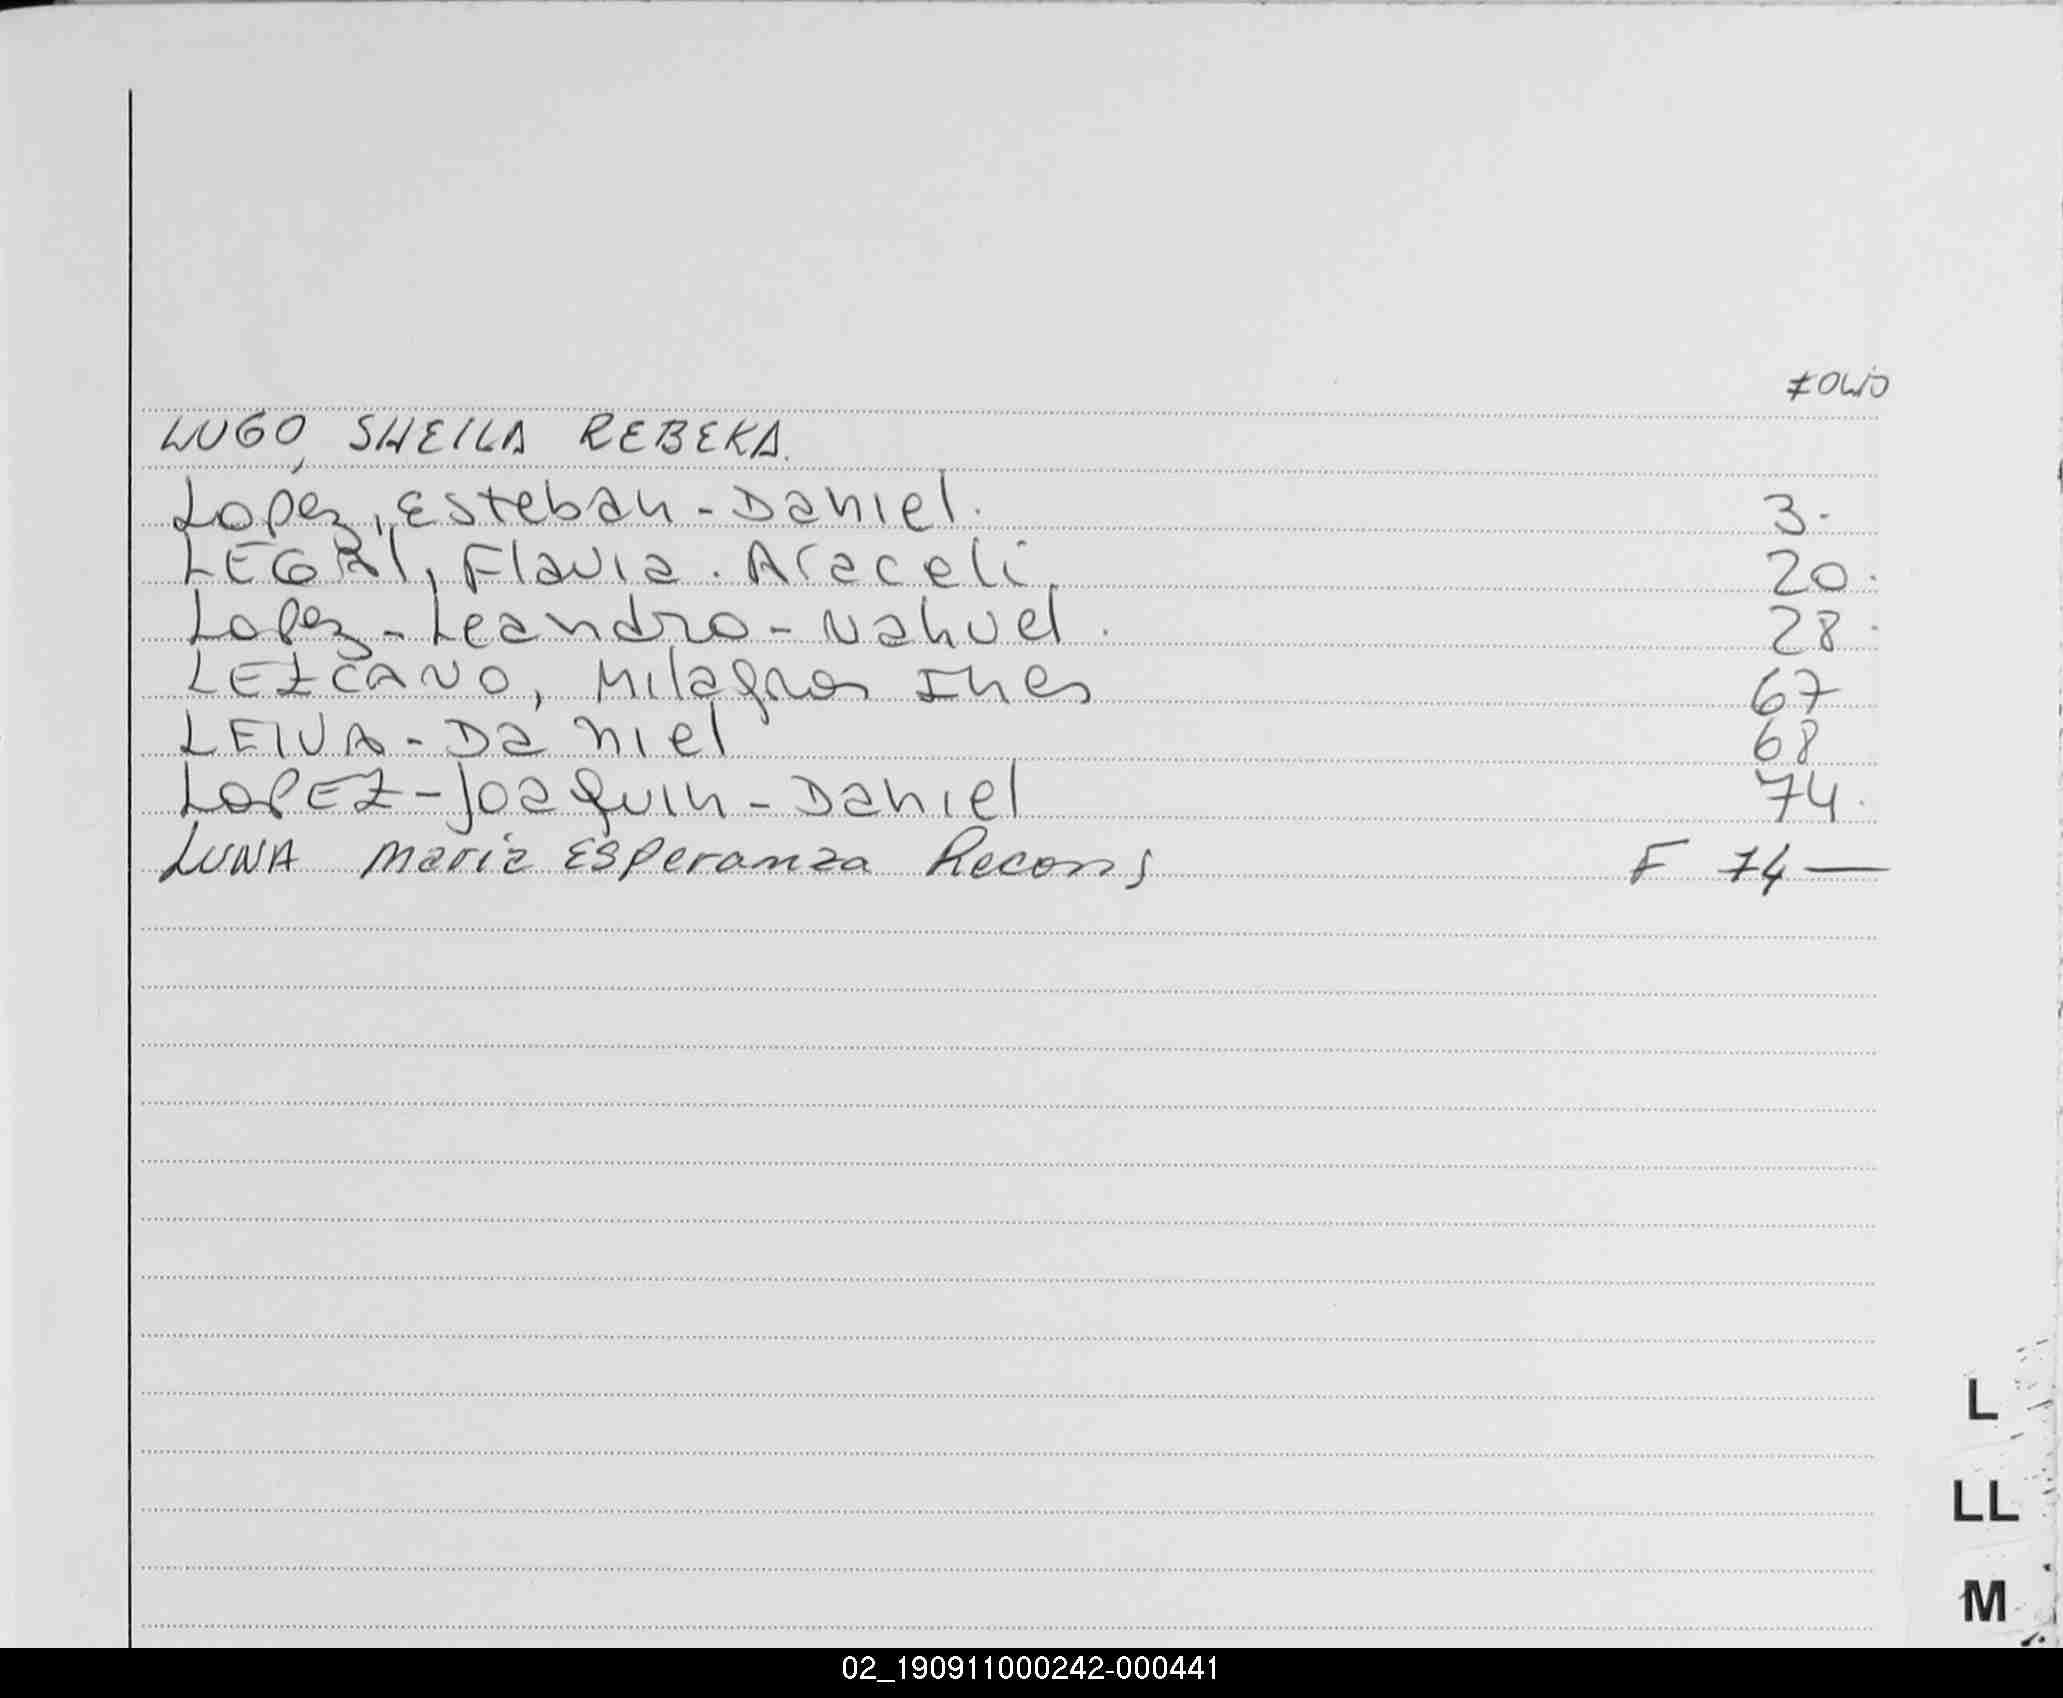 FOLIO
LUGO, SHEILA REBEKA.
Lopez, Esteban - Daniel. 3.
LEGAL, Flavia. Araceli. 20.
Lopez - Leandro - Nahuel. 28.
LEZCANO, Milagros Ines 67
LEIVA - Daniel 68
LOPEZ - Joaquin - Daniel 74.
LUNA Maria Esperanza Recons F 74 —
L
LL
M
02_190911000242-000441